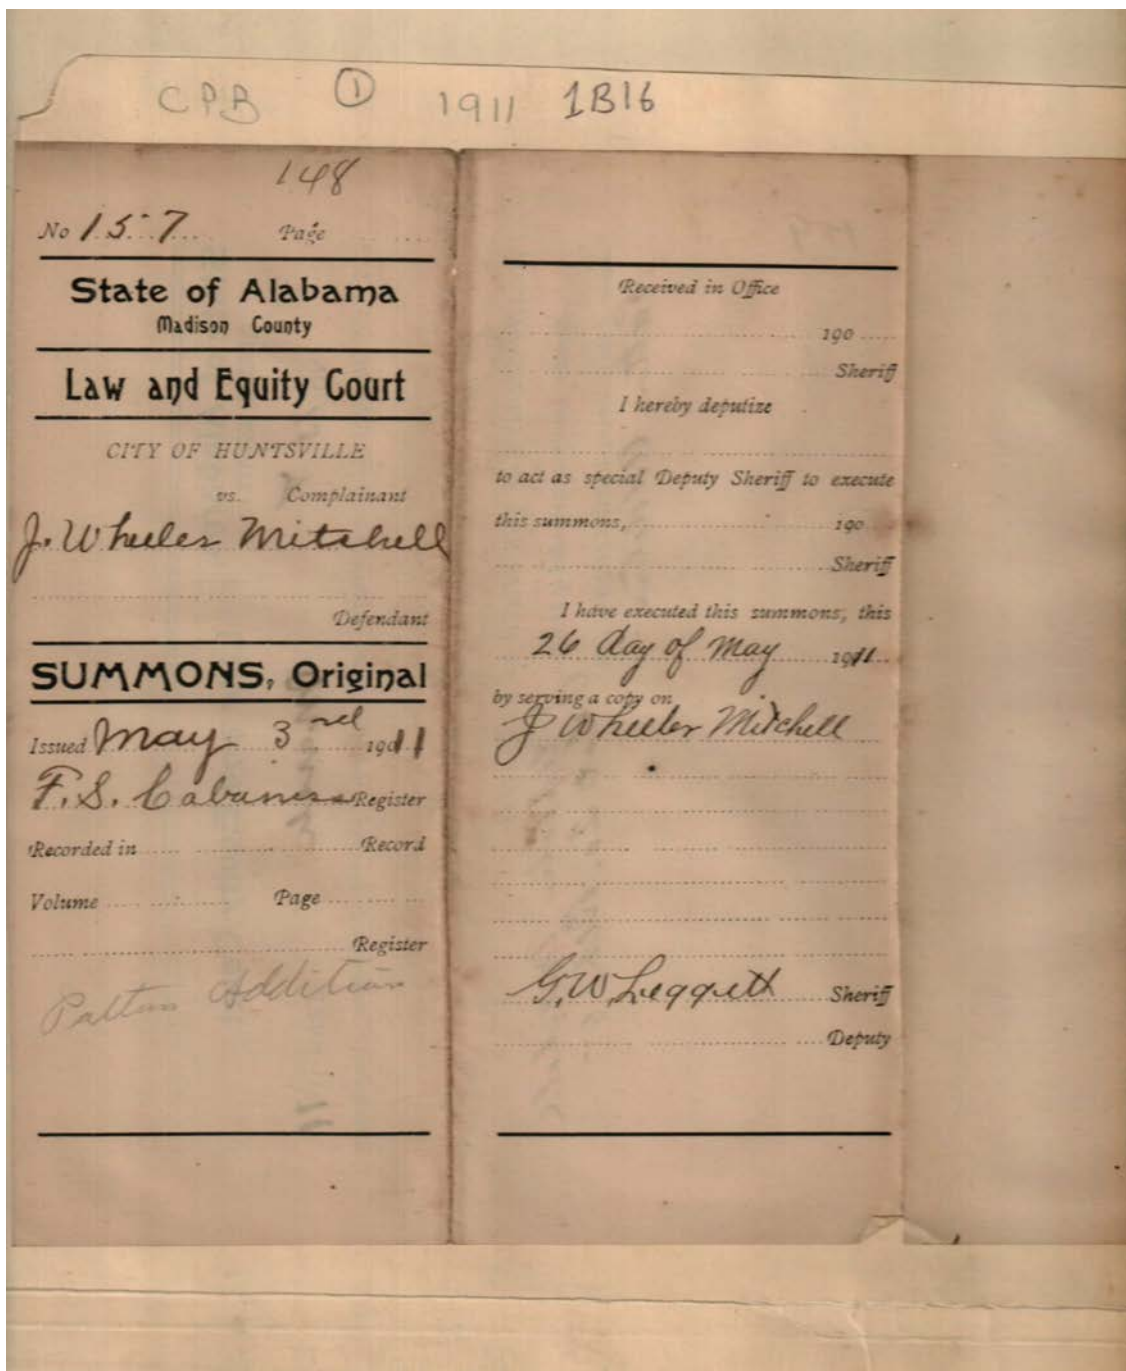 CPB ① 1911 1B16
148
No 157 Page
State of Alabama
Madison County
Law and Equity Court
CITY OF HUNTSVILLE
vs. Complainant
J. Wheeler Mitchell
Defendant
SUMMONS, Original
Issued May 3rd 1911
F. S. Cabaniss Register
Recorded in Record
Volume Page
Register
Patton Addition
Received in Office
190
Sheriff
I hereby deputize
to act as special Deputy Sheriff to execute
this summons, 190
Sheriff
I have executed this summons, this
26 day of May 1911
by serving a copy on
J Wheeler Mitchell
G. W. Leggett Sheriff
Deputy